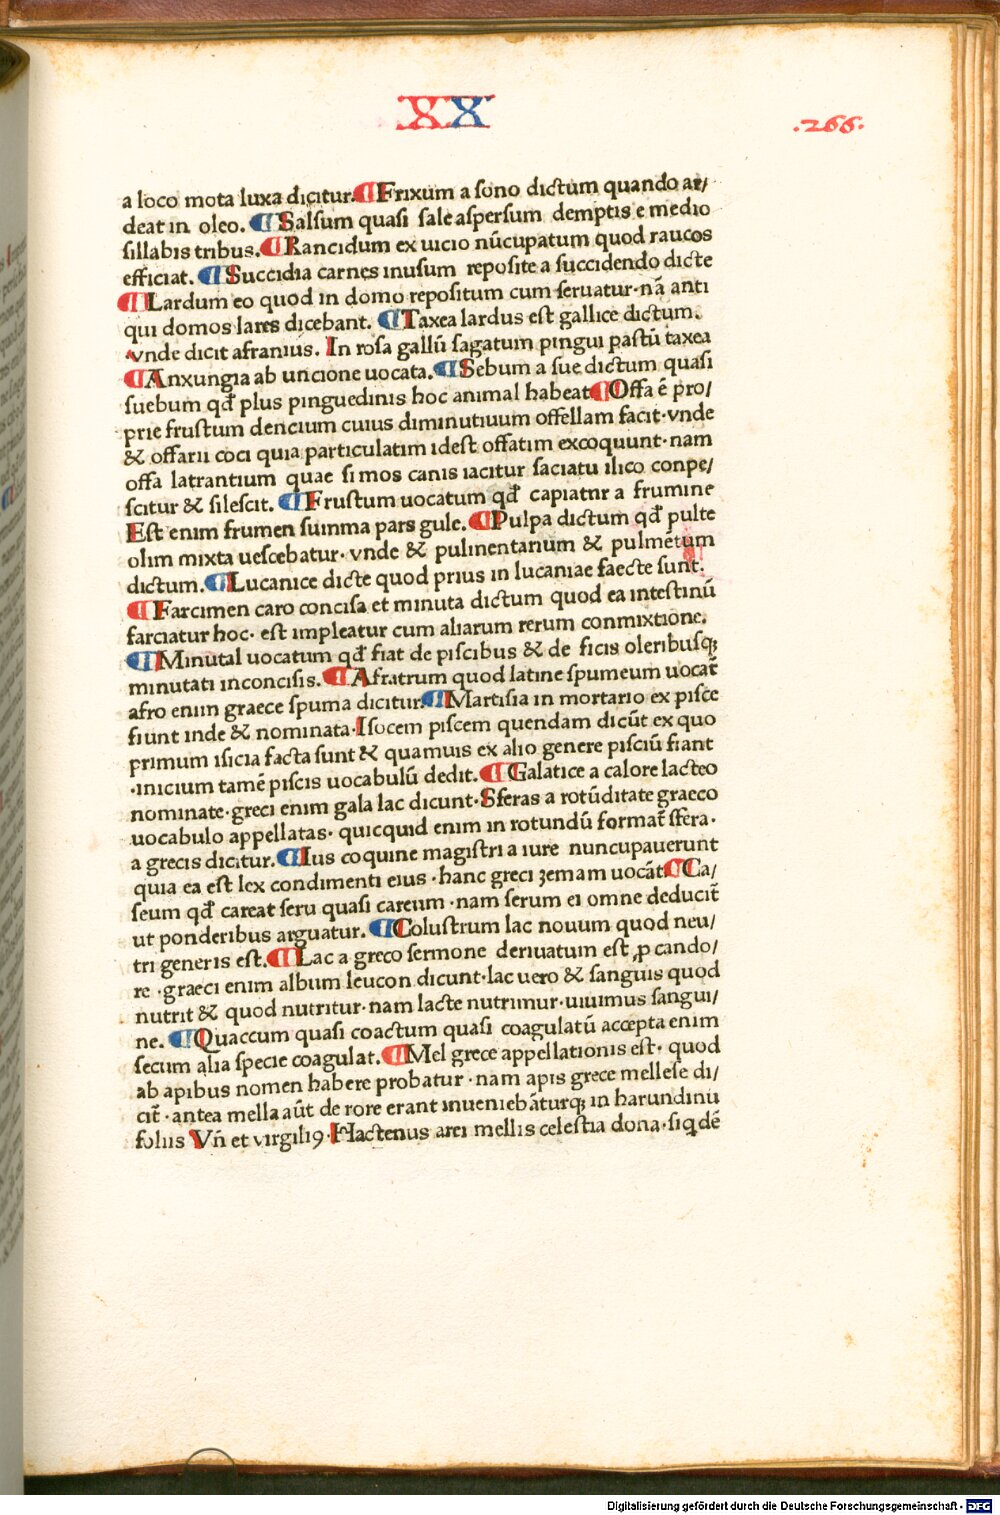 XX
.266.
a loco mota luxa dicitur. ¶ Frixum a sono dictum quando ar/
deat in oleo. ¶ Salsum quasi sale aspersum demptis e medio
sillabis tribus. ¶ Rancidum ex uicio nūcupatum quod raucos
efficiat. ¶ Succidia carnes inusum reposite a succidendo dicte
¶ Lardum eo quod in domo repositum cum seruatur·nā anti
qui domos lares dicebant. ¶ Taxea lardus est gallice dictum.
vnde dicit afranius. In rosa gallū sagatum pingui pastū taxea
¶ Anxungia ab uncione uocata. ¶ Sebum a sue dictum quasi
suebum qđ plus pinguedinis hoc animal habeat ¶ Offa ē pro/
prie frustum dencium cuius diminutiuum offellam facit·vnde
& offarii coci quia particulatim idest offatim excoquunt·nam
offa latrantium quae si mos canis iacitur saciatu ilico conpe/
scitur & silescit. ¶ Frustum uocatum qđ capiatur a frumine
Est enim frumen summa pars gule. ¶ Pulpa dictum qđ pulte
olim mixta uescebatur· vnde & pulmentarium & pulmētum
dictum. ¶ Lucanice dicte quod prius in lucaniae faecte sunt.
¶ Farcimen caro concisa et minuta dictum quod ea intestinū
farciatur hoc· est impleatur cum aliarum rerum conmixtione.
¶ Minutal uocatum qđ fiat de piscibus & de ficis oleribusqȝ
minutati inconcisis. ¶ Afratrum quod latine spumeum uocat̄
afro enim graece spuma dicitur. ¶ Martisia in mortario ex pisce
fiunt inde & nominata·Isocem piscem quendam dicūt ex quo
primum isicia facta sunt & quamuis ex alio genere pisciū fiant
·inicium tamē piscis uocabulū dedit. ¶ Galatice a calore lacteo
nominate·greci enim gala lac dicunt·Sferas a rotūditate graeco
uocabulo appellatas· quicquid enim in rotundū format̄ sfera·
a grecis dicitur. ¶ Ius coquine magistri a iure nuncupauerunt
quia ea est lex condimenti eius ·hanc greci zemam uocāt ¶ Ca/
seum qđ careat seru quasi careum ·nam serum ei omne deducit̄
ut ponderibus arguatur. ¶ Colustrum lac nouum quod neu/
tri generis est. ¶ Lac a greco sermone deriuatum est ꝓ cando/
re ·graeci enim album leucon dicunt·lac uero & sanguis quod
nutrit & quod nutritur·nam lacte nutrimur·uiuimus sangui/
ne. ¶ Quaccum quasi coactum quasi coagulatū accepta enim
secum alia specie coagulat. ¶ Mel grece appellationis est· quod
ab apibus nomen habere probatur ·nam apis grece mellese di/
cit̄ ·antea mella aūt de rore erant inueniebāturqȝ in harundinū
foliis Vn̄ et virgili9·Hactenus arei mellis celestia dona·siqdē
Digitalisierung gefördert durch die Deutsche Forschungsgemeinschaft - DFG